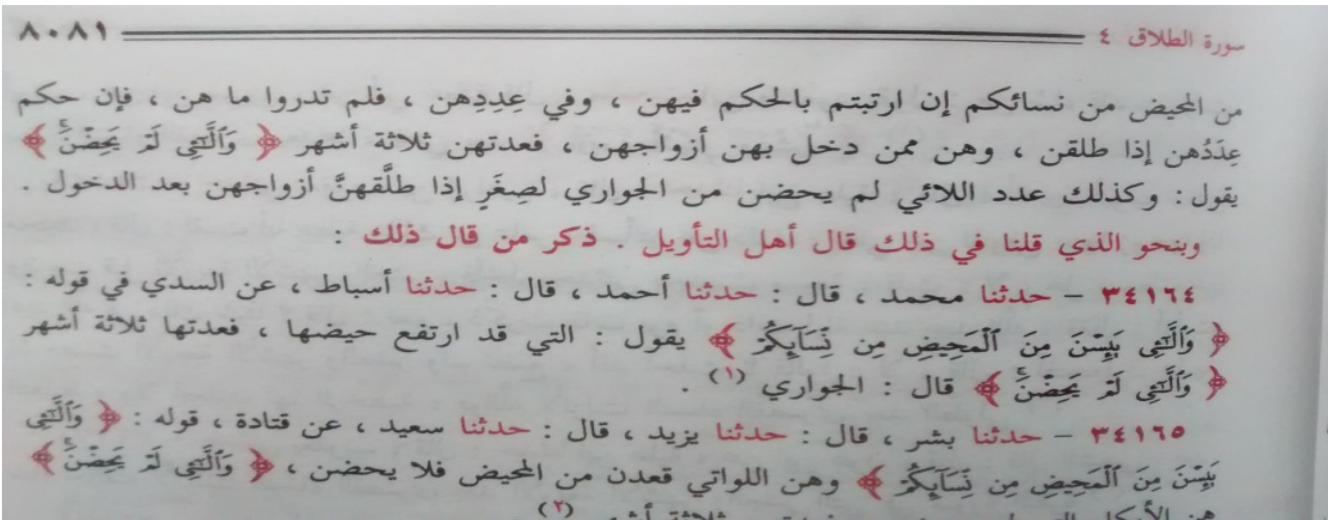 سورة الطلاق ٤ ٨٠٨١
من المحيض من نسائكم إن ارتبتم بالحكم فيهن ، وفي عِدِدِهن ، فلم تدروا ما هن ، فإن حكم
عِدَدُهن إذا طلقن ، وهن ممن دخل بهن أزواجهن ، فعدتهن ثلاثة أشهر ﴿ وَٱلَّـٰٓـِٔى لَمْ يَحِضْنَ ۚ ﴾
يقول : وكذلك عدد اللائي لم يحضن من الجواري لصِغَرٍ إذا طلَّقهنَّ أزواجهن بعد الدخول .
وبنحو الذي قلنا في ذلك قال أهل التأويل . ذكر من قال ذلك :
٣٤١٦٤ – حدثنا محمد ، قال : حدثنا أحمد ، قال : حدثنا أسباط ، عن السدي في قوله :
﴿ وَٱلَّـٰٓـِٔى يَئِسْنَ مِنَ ٱلْمَحِيضِ مِن نِّسَآئِكُمْ ﴾ يقول : التي قد ارتفع حيضها ، فعدتها ثلاثة أشهر
﴿ وَٱلَّـٰٓـِٔى لَمْ يَحِضْنَ ۚ ﴾ قال : الجواري (١) .
٣٤١٦٥ – حدثنا بشر ، قال : حدثنا يزيد ، قال : حدثنا سعيد ، عن قتادة ، قوله : ﴿ وَٱلَّـٰٓـِٔى
يَئِسْنَ مِنَ ٱلْمَحِيضِ مِن نِّسَآئِكُمْ ﴾ وهن اللواتي قعدن من المحيض فلا يحضن ، ﴿ وَٱلَّـٰٓـِٔى لَمْ يَحِضْنَ ۚ ﴾
هن الأبكار ثلاثة أشهر (٢)